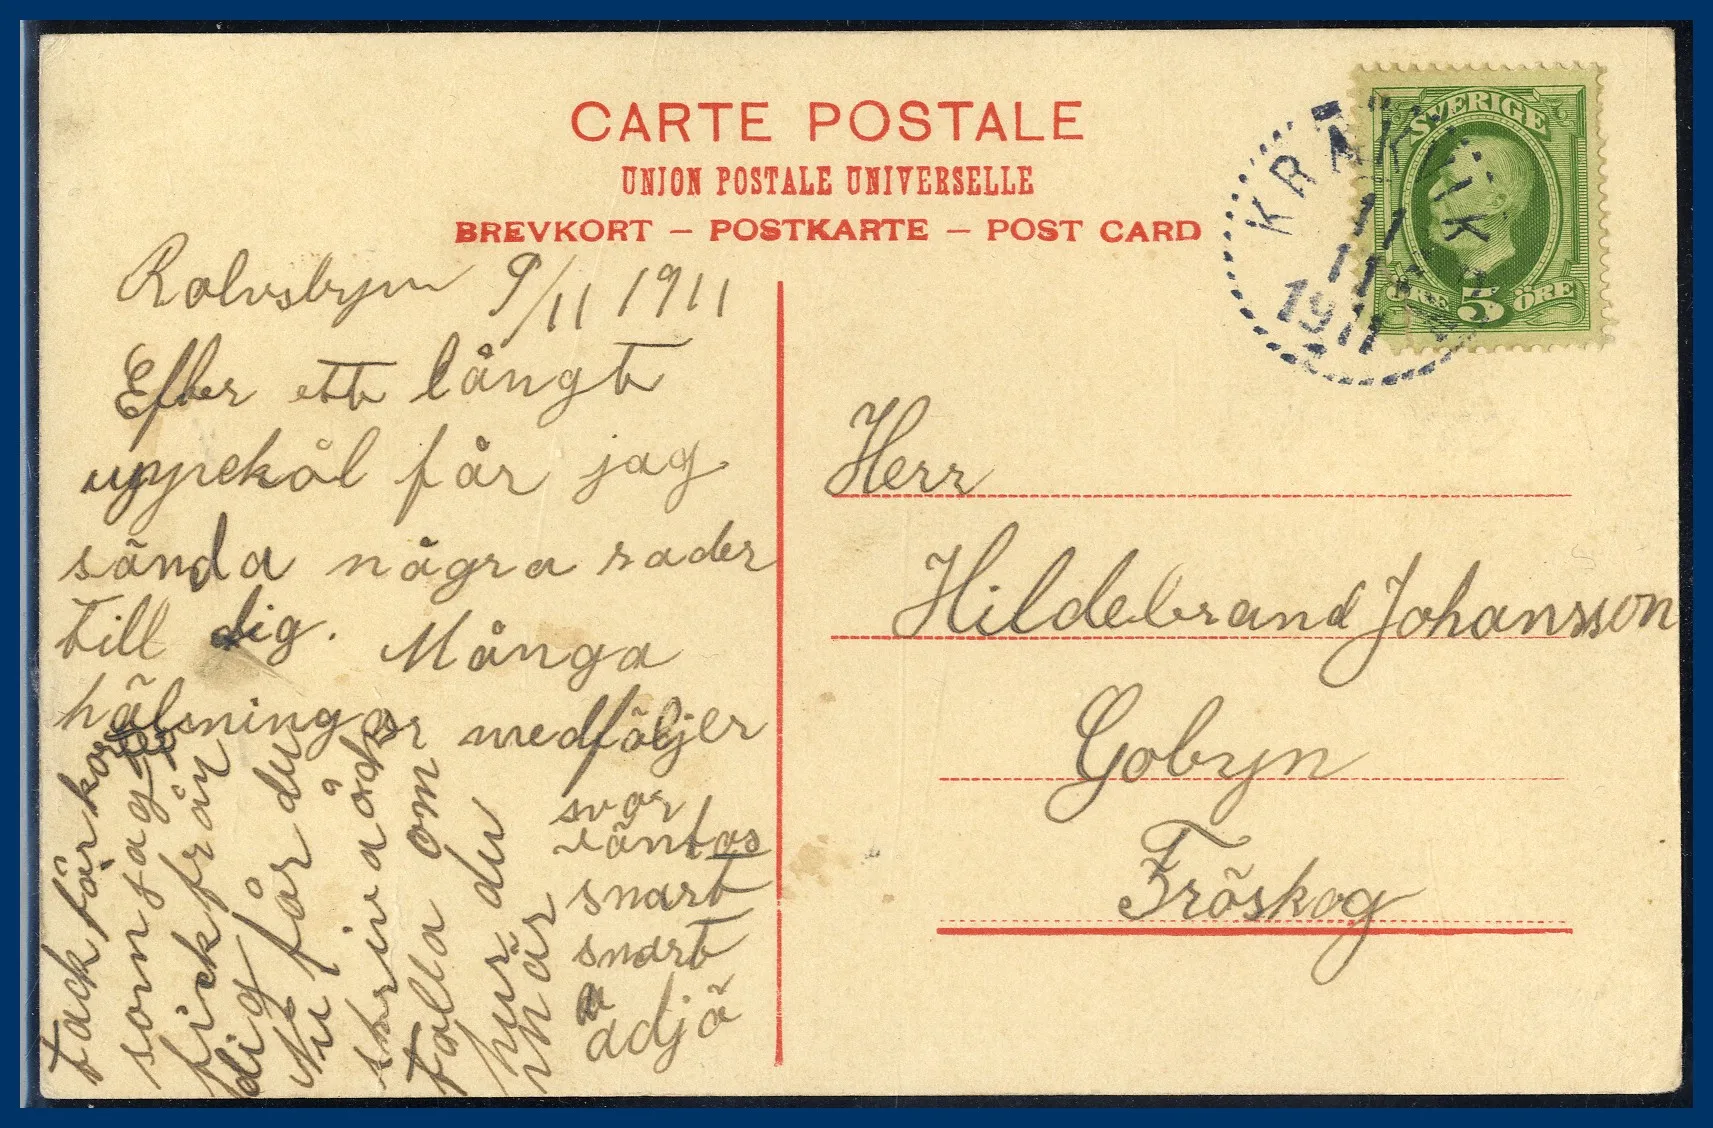 CARTE POSTALE
UNION POSTALE UNIVERSELLE
BREVKORT – POSTKARTE – POST CARD
SVERIGE
ÖRE 5 ÖRE
11
11
1911
Rolvsbyn 9/11 1911
Efter ett långt
uppeköl får jag
sända några rader
till dig. Många
hälsningar medföljer
svar
väntas
snart
snart
adjö
tack för kor
som jag
fick från
dig
Nu får du
skriva och
tala om
hur du
mår
Herr
Hildebrand Johansson
Gobyn
Fröskog